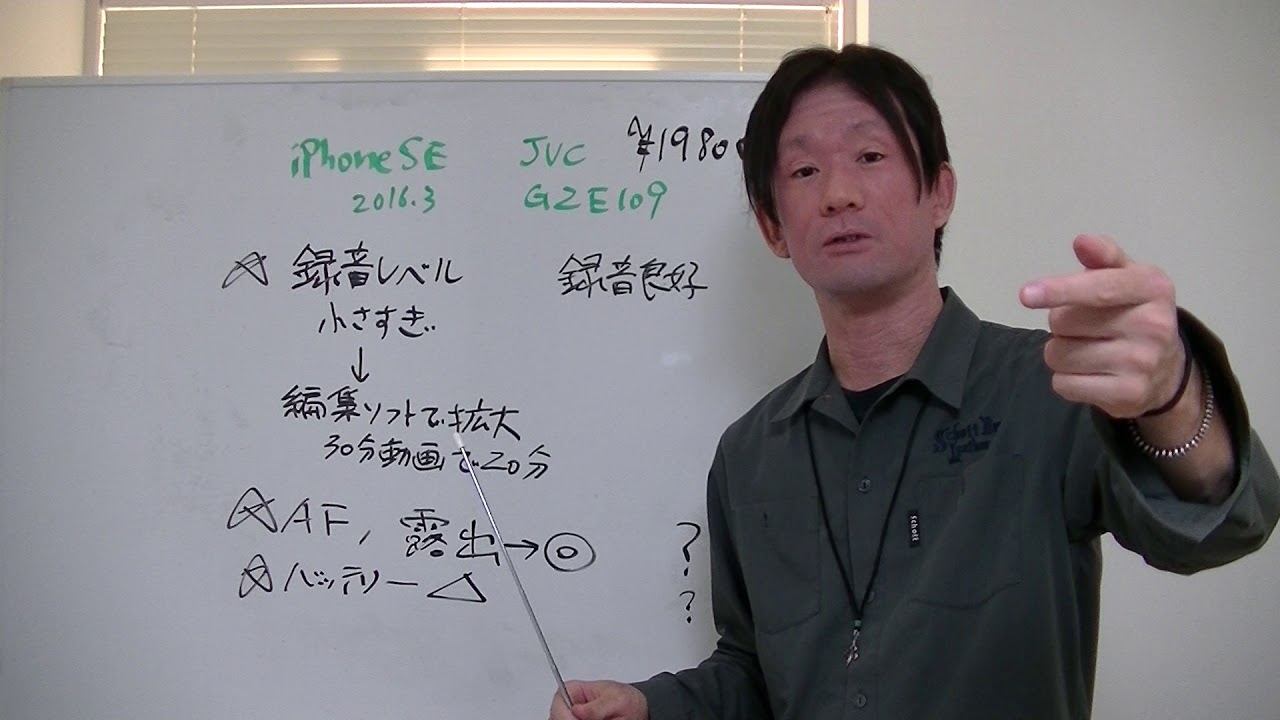 iPhone SE JVC ¥1980
2016.3 GZE109
☆ 録音レベル 録音良好
小さすぎ
↓
編集ソフトで拡大
30分動画で20分
☆AF, 露出→◎ ?
☆バッテリー△ ?
Schott